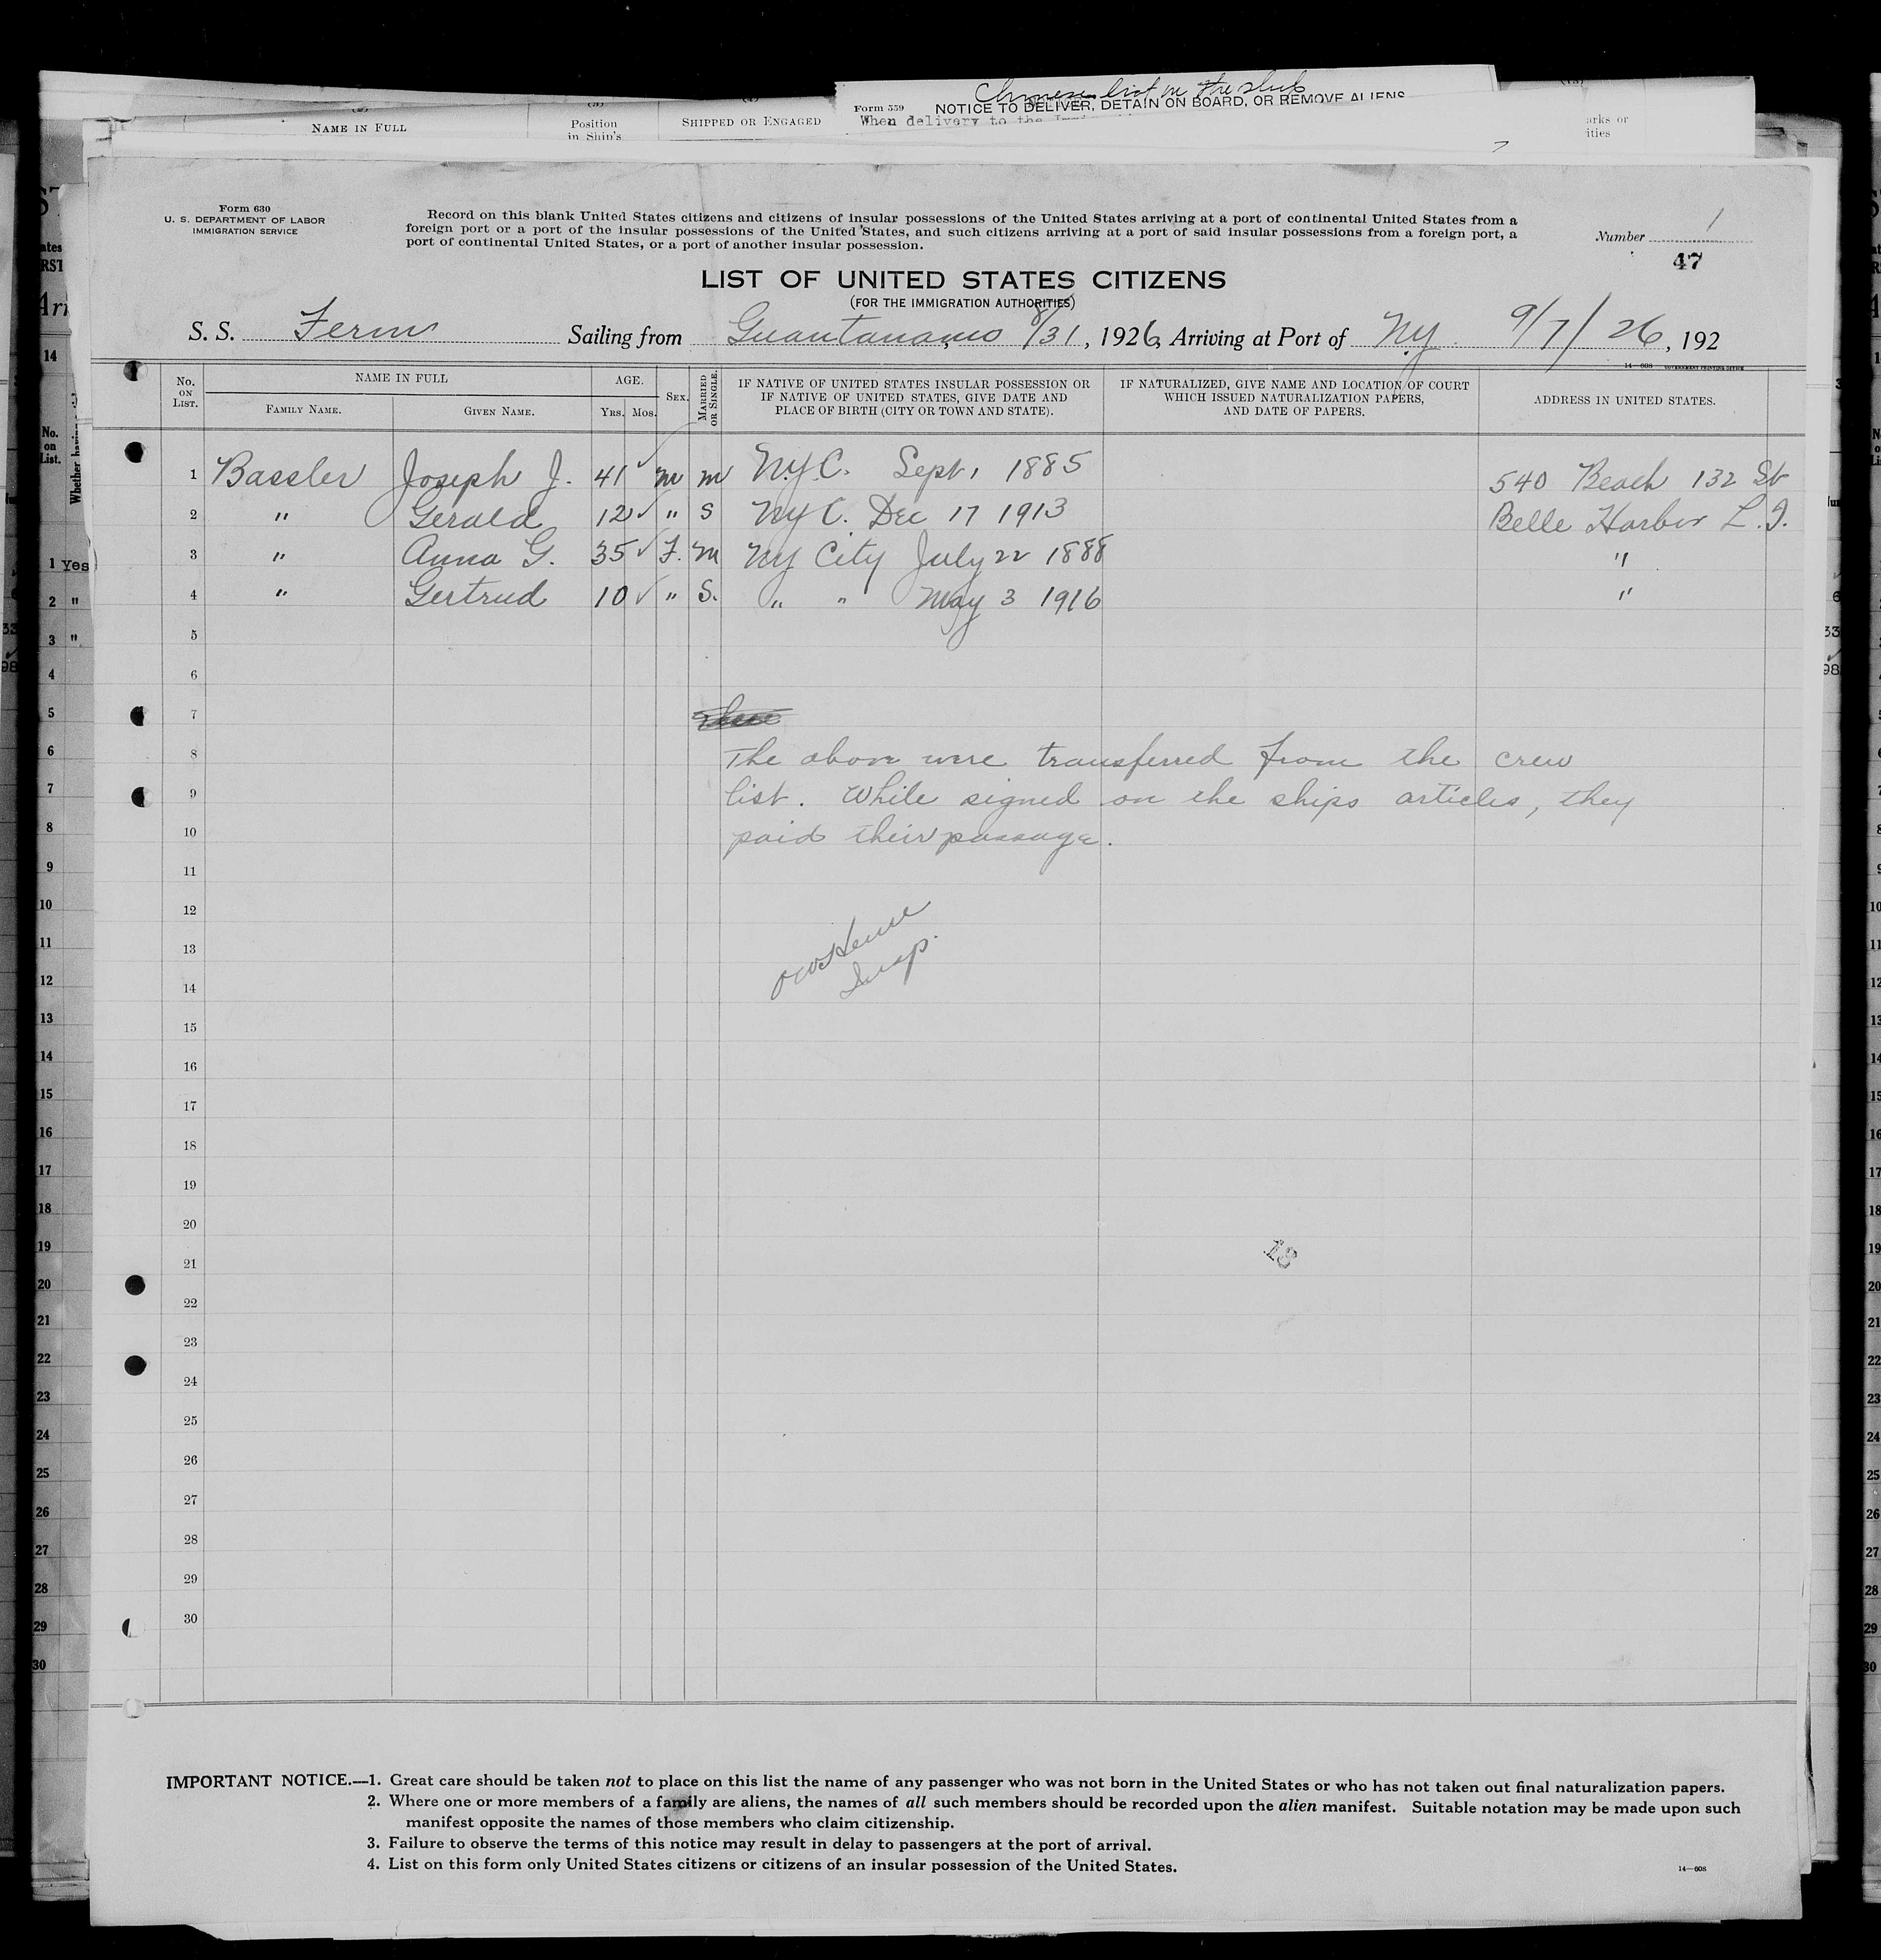 Chinese list in the stub
Form 559 NOTICE TO DELIVER, DETAIN ON BOARD, OR REMOVE ALIENS
When delivery to the
NAME IN FULL
Position
in Ship's
SHIPPED OR ENGAGED
Form 630
U. S. DEPARTMENT OF LABOR
IMMIGRATION SERVICE
Record on this blank United States citizens and citizens of insular possessions of the United States arriving at a port of continental United States from a
foreign port or a port of the insular possessions of the United States, and such citizens arriving at a port of said insular possessions from a foreign port, a
port of continental United States, or a port of another insular possession.
Number 1
47
LIST OF UNITED STATES CITIZENS
(FOR THE IMMIGRATION AUTHORITIES)
S. S. Sailing from Guantanamo 8/31, 1926, Arriving at Port of NY 9/7/26, 192
14—608 GOVERNMENT PRINTING OFFICE
No. ON LIST.
NAME IN FULL
FAMILY NAME.
GIVEN NAME.
AGE.
Yrs. Mos.
SEX.
MARRIED OR SINGLE.
IF NATIVE OF UNITED STATES INSULAR POSSESSION OR
IF NATIVE OF UNITED STATES, GIVE DATE AND
PLACE OF BIRTH (CITY OR TOWN AND STATE).
IF NATURALIZED, GIVE NAME AND LOCATION OF COURT
WHICH ISSUED NATURALIZATION PAPERS,
AND DATE OF PAPERS.
ADDRESS IN UNITED STATES.
1 Bassler Joseph J. 41 m m N.Y.C. Sept 1 1885 540 Beach 132 St
2 " Gerald 12 " S NYC. Dec 17 1913 Belle Harbor L.I.
3 " Anna G. 35 F. M NY City July 22 1888 "
4 " Gertrud 10 " S. " " May 3 1916 "
5
6
7
8 The above were transferred from the crew
9 list. While signed on the ships articles, they
10 paid their passage.
11
12
13
Insp.
14
15
16
17
18
19
20
21
18
22
23
24
25
26
27
28
29
30
IMPORTANT NOTICE.—1. Great care should be taken not to place on this list the name of any passenger who was not born in the United States or who has not taken out final naturalization papers.
2. Where one or more members of a family are aliens, the names of all such members should be recorded upon the alien manifest. Suitable notation may be made upon such
manifest opposite the names of those members who claim citizenship.
3. Failure to observe the terms of this notice may result in delay to passengers at the port of arrival.
4. List on this form only United States citizens or citizens of an insular possession of the United States.
14—608